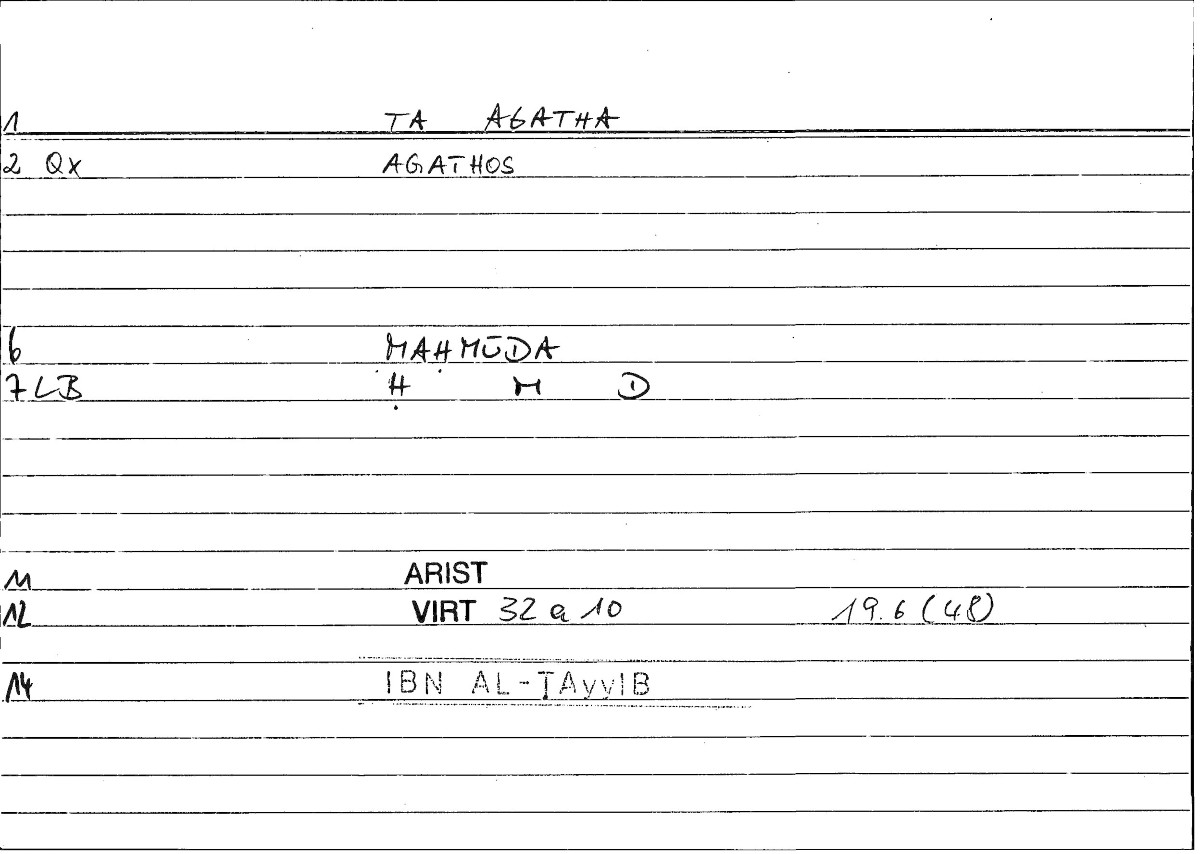 1 TA AGATHA
2 QX AGATHOS
6 MAḤMŪDA
7 LB Ḥ M D
11 ARIST
12 VIRT 32 a 10 19.6 (48)
14 IBN AL-ṬAyyIB